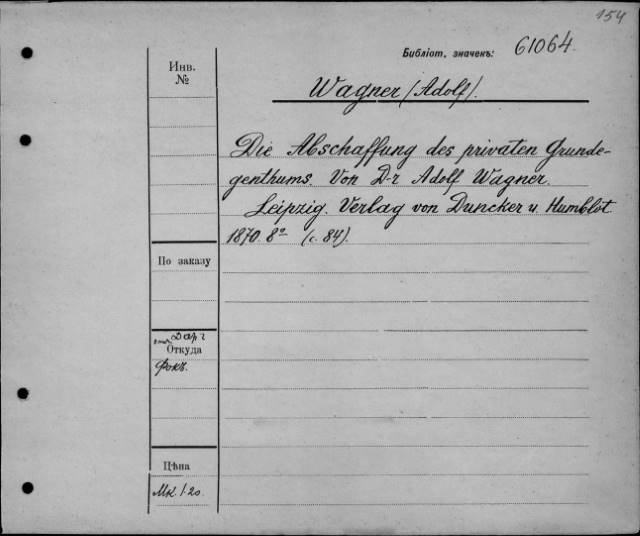 154
Библіот. значекъ: 61064.
Инв.
№
Wagner (Adolf).
Die Abschaffung des privaten Grunde-
genthums. Von D-r Adolf Wagner.
Leipzig. Verlag von Duncker u. Humblot
1870. 8º (с. 84).
По заказу
Откуда
Фокъ.
Цѣна
Мк. 1.20.